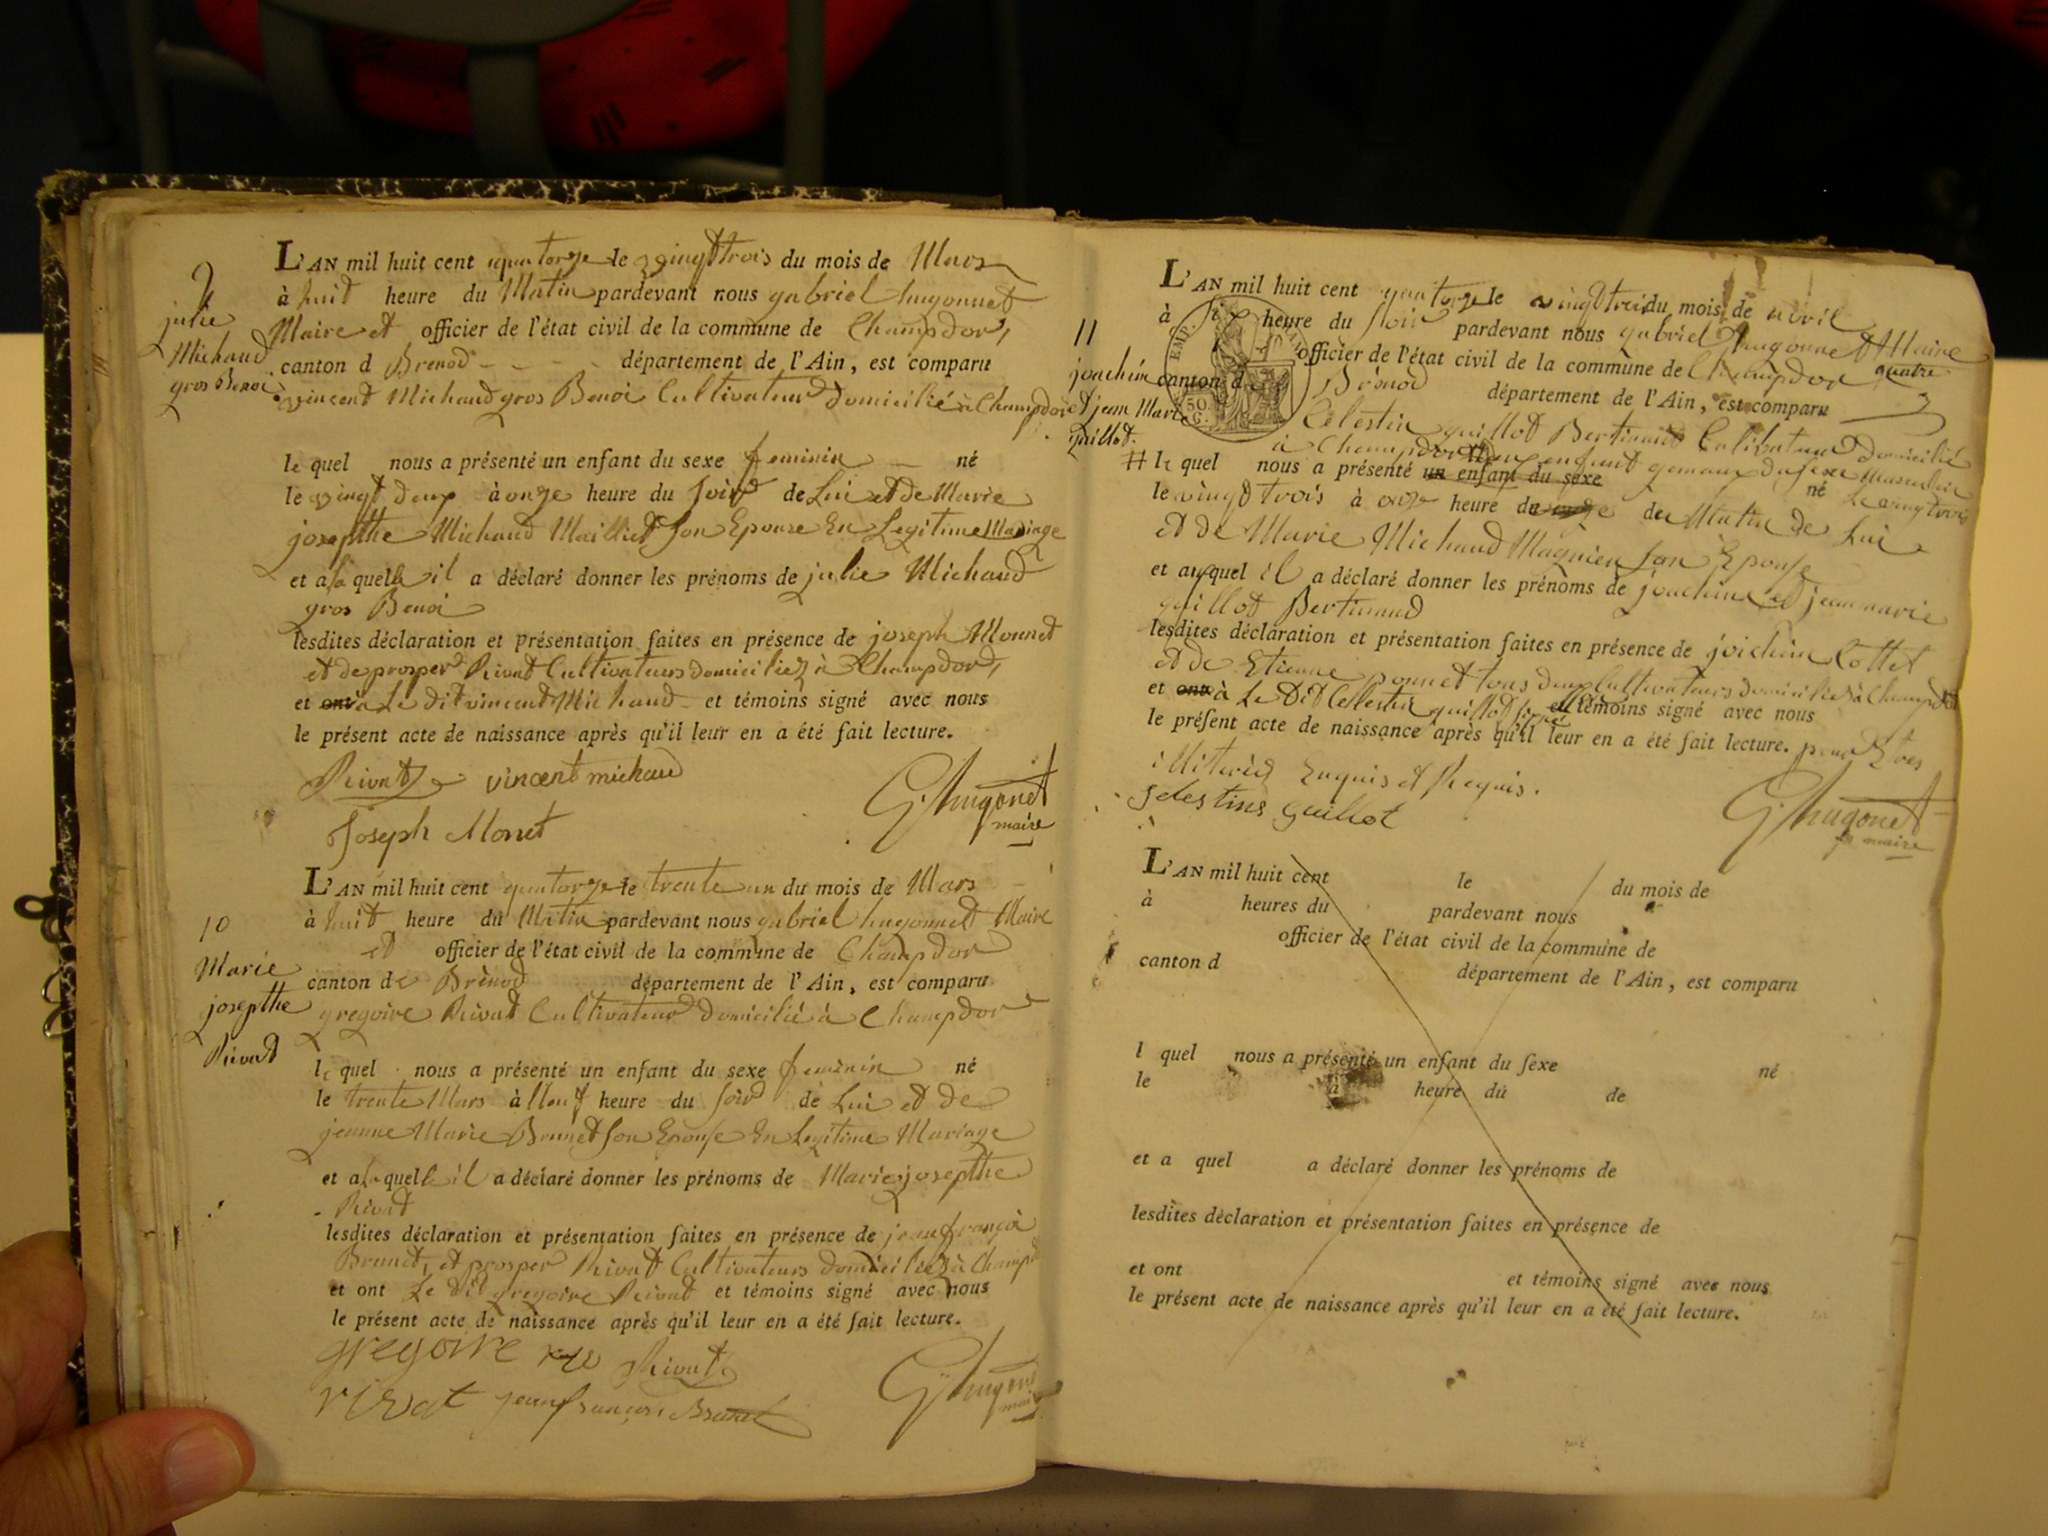 9
julie
Michaud
gros Benoi
L'AN mil huit cent quatorze le vingt trois du mois de Mars
à huit heure du Matin pardevant nous gabriel hugonnet
Maire et officier de l'état civil de la commune de Champdor,
canton d Brenod département de l'Ain, est comparu
vincent Michaud gros Benoi Cultivateur domicilié à Champdor
le quel nous a présenté un enfant du sexe feminin né
le vingt deux à onze heure du soir de Lui et de Marie
josephte Michaud Maillet son Epouse En Legitime Mariage
et a la quelle il a déclaré donner les prénoms de julie Michaud
gros Benoi
lesdites déclaration et présentation faites en présence de joseph Monnet
et de prosper Rivat Cultivateurs domiciliez à Champdor,
et ont a Le dit vincent Michaud et témoins signé avec nous
le présent acte de naissance après qu'il leur en a été fait lecture.
Rivat vincent michaud
G. hugonet
maire
Joseph Monet
10
Marie
josephte
Rivat
L'AN mil huit cent quatorze le trente un du mois de Mars
à huit heure du Matin pardevant nous gabriel hugonnet Maire
et officier de l'état civil de la commune de Champdor
canton de Brénod département de l'Ain, est comparu
gregoire Rivat Cultivateur domicilié à Champdor
le quel nous a présenté un enfant du sexe feminin né
le trente Mars à Neuf heure du soir de Lui et de
jeanne Marie Brunet son Epouse En Legitime Mariage
et a la quelle il a déclaré donner les prénoms de Marie josephte
Rivat
lesdites déclaration et présentation faites en présence de jean françoi
Brunet, et prosper Rivat Cultivateurs domiciliez à Champ
et ont Le dit gregoire Rivat et témoins signé avec nous
le présent acte de naissance après qu'il leur en a été fait lecture.
gregoire Rivat
rivat jean françoi Brunet
G. hugon
mai
11
joachim
et jean Marie
guillot
L'AN mil huit cent quatorze le vingt trois du mois de avril
à six heure du soir pardevant nous gabriel hugonnet Maire
officier de l'état civil de la commune de Champdor
canton d Brénod département de l'Ain, est comparu
Celestin guillot Bertinand Cultivateur domicilié
à Champdor
deux enfant gemaux du sexe Masculin
le quel nous a présenté un enfant du sexe né le vingt trois
le vingt trois à onze heure du Matin de Lui
et de Marie Michaud Magnien son Epouse
et auxquel il a déclaré donner les prénoms de joachim et jean marie
guillot Bertinand
lesdites déclaration et présentation faites en présence de joichim Cottet
et de Etienne tous deux Cultivateurs domiciliez à Champdor
et ont à Le Dit Celestin guillot signé et témoins signé avec nous
le présent acte de naissance après qu'il leur en a été fait lecture. pour Etres
illiterés Enquis et Requis.
selestins guillot
G. hugonet
maire
L'AN mil huit cent le du mois de
à heures du pardevant nous
officier de l'état civil de la commune de
canton d département de l'Ain, est comparu
l quel nous a présenté un enfant du sexe né
le à heure du de
et a quel a déclaré donner les prénoms de
lesdites déclaration et présentation faites en présence de
et ont et témoins signé avec nous
le présent acte de naissance après qu'il leur en a été fait lecture.